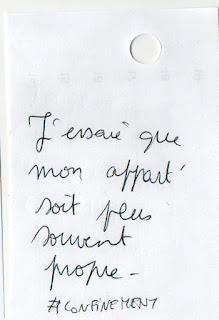 J'essaie que
mon appart'
soit plus
souvent
propre -
#CONFINEMENT